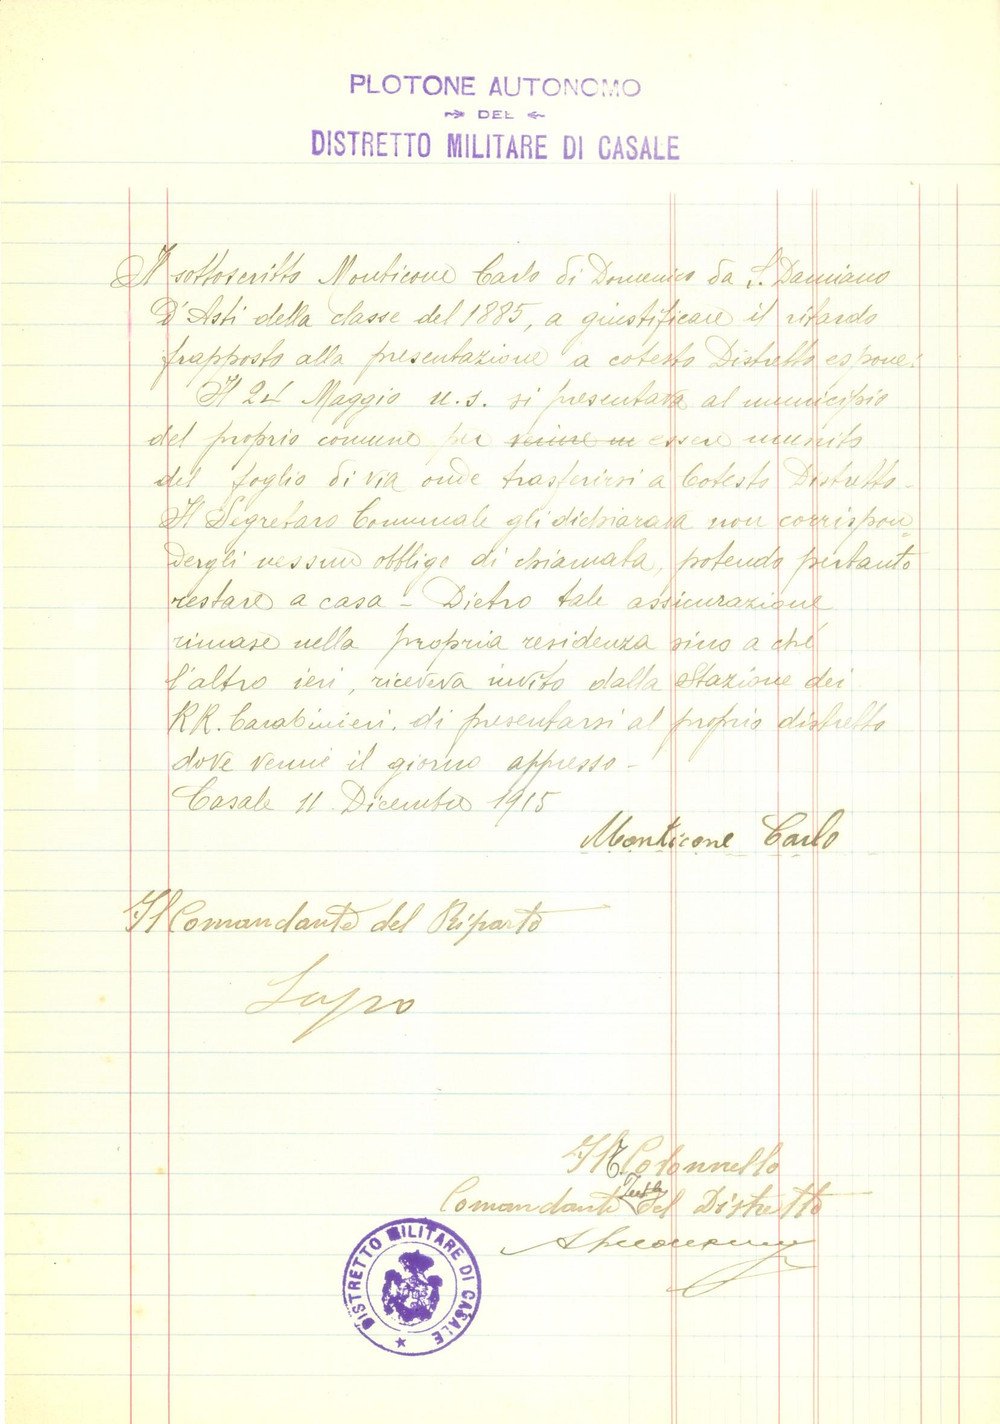 PLOTONE AUTONOMO
DEL
DISTRETTO MILITARE DI CASALE
Il sottoscritto Monticone Carlo di Domenico da S. Damiano
D'Asti della classe del 1885, a giustificare il ritardo
frapposto alla presentazione a cotesto Distretto espone:
Il 24 Maggio u.s. si presentava al municipio
del proprio comune per venire in essere munito
del foglio di via onde trasferirsi a Cotesto Distretto -
Il Segretaro Comunale gli dichiarava non corrispon=
dergli nessun obbligo di chiamata, potendo pertanto
restare a casa - Dietro tale assicurazione
rimase nella propria residenza sino a ché
l'altro ieri, riceveva invito dalla Stazione dei
RR. Carabinieri. di presentarsi al proprio distretto
dove venne il giorno appresso -
Casale 11 Dicembre 1915
Monticone Carlo
Il Comandante del Riparto
Lupo
Il T. Colonnello
Comandante del Distretto
DISTRETTO MILITARE DI CASALE